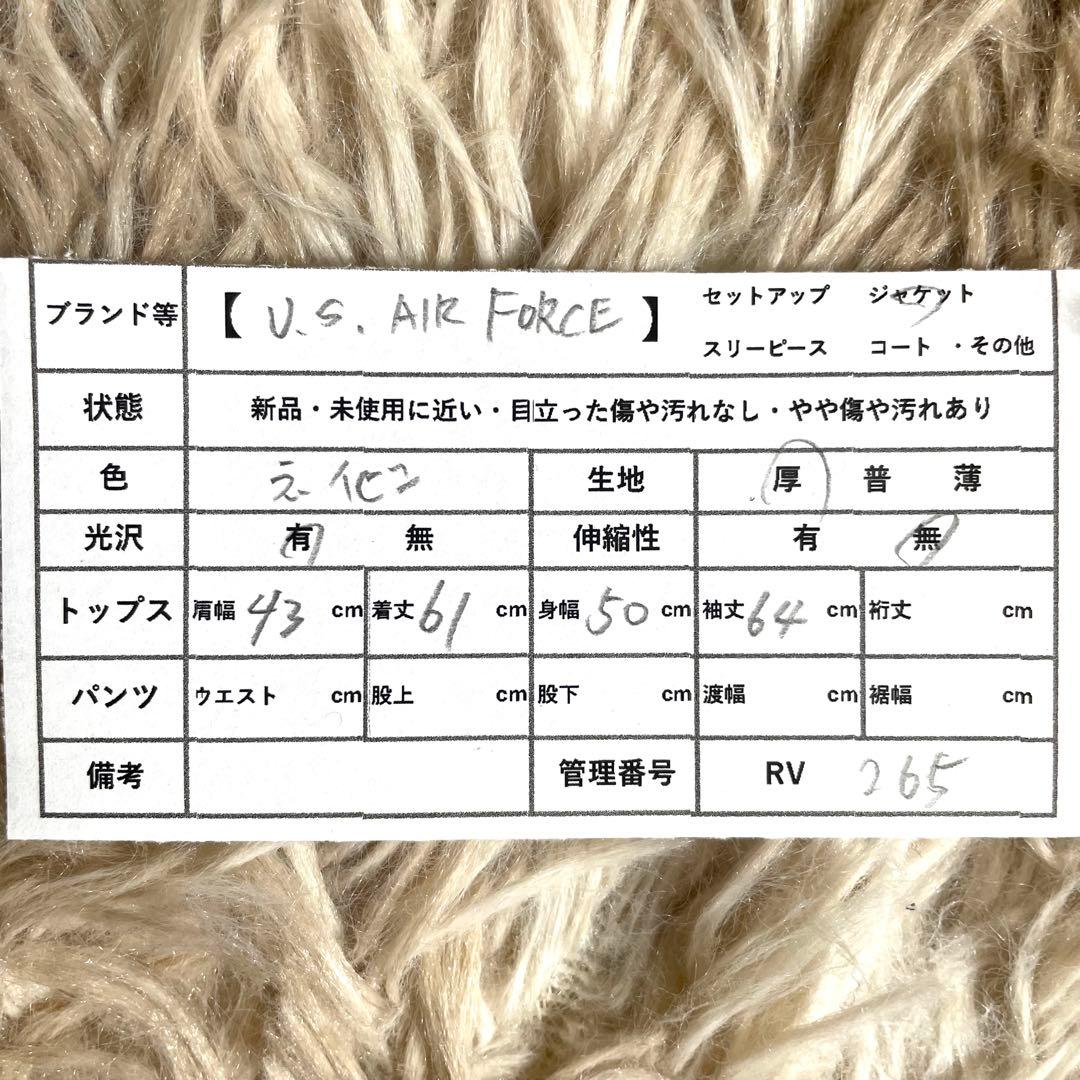 ブランド等 【 U.S. AIR FORCE 】 セットアップ ジャケット
スリーピース コート ・その他
状態 新品・未使用に近い・目立った傷や汚れなし・やや傷や汚れあり
色 生地 厚 普 薄
光沢 有 無 伸縮性 有 無
トップス 肩幅 43 cm 着丈 61 cm 身幅 50 cm 袖丈 64 cm 裄丈 cm
パンツ ウエスト cm 股上 cm 股下 cm 渡幅 cm 裾幅 cm
備考 管理番号 RV 265